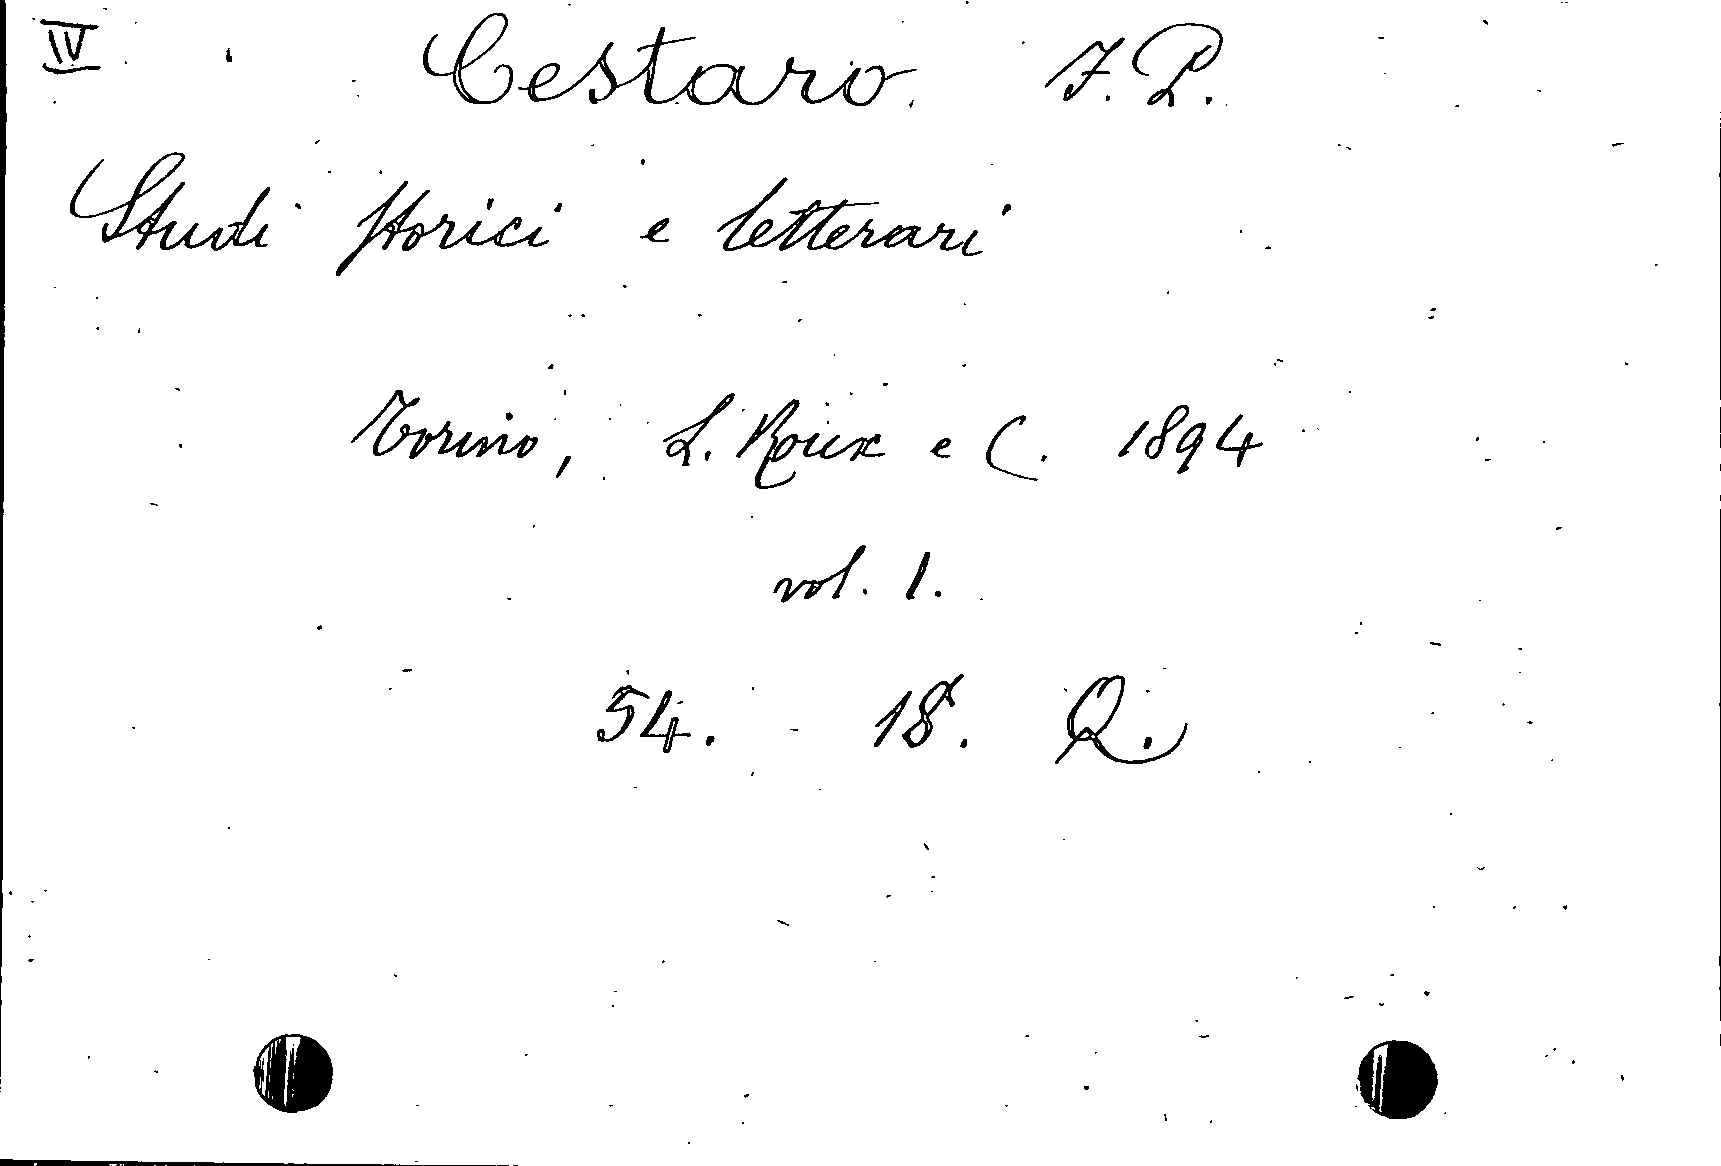 IV Cestaro F. P.
Studi storici e letterari
Torino, L. Roux e C. 1894
vol. 1.
54. 18. Q.